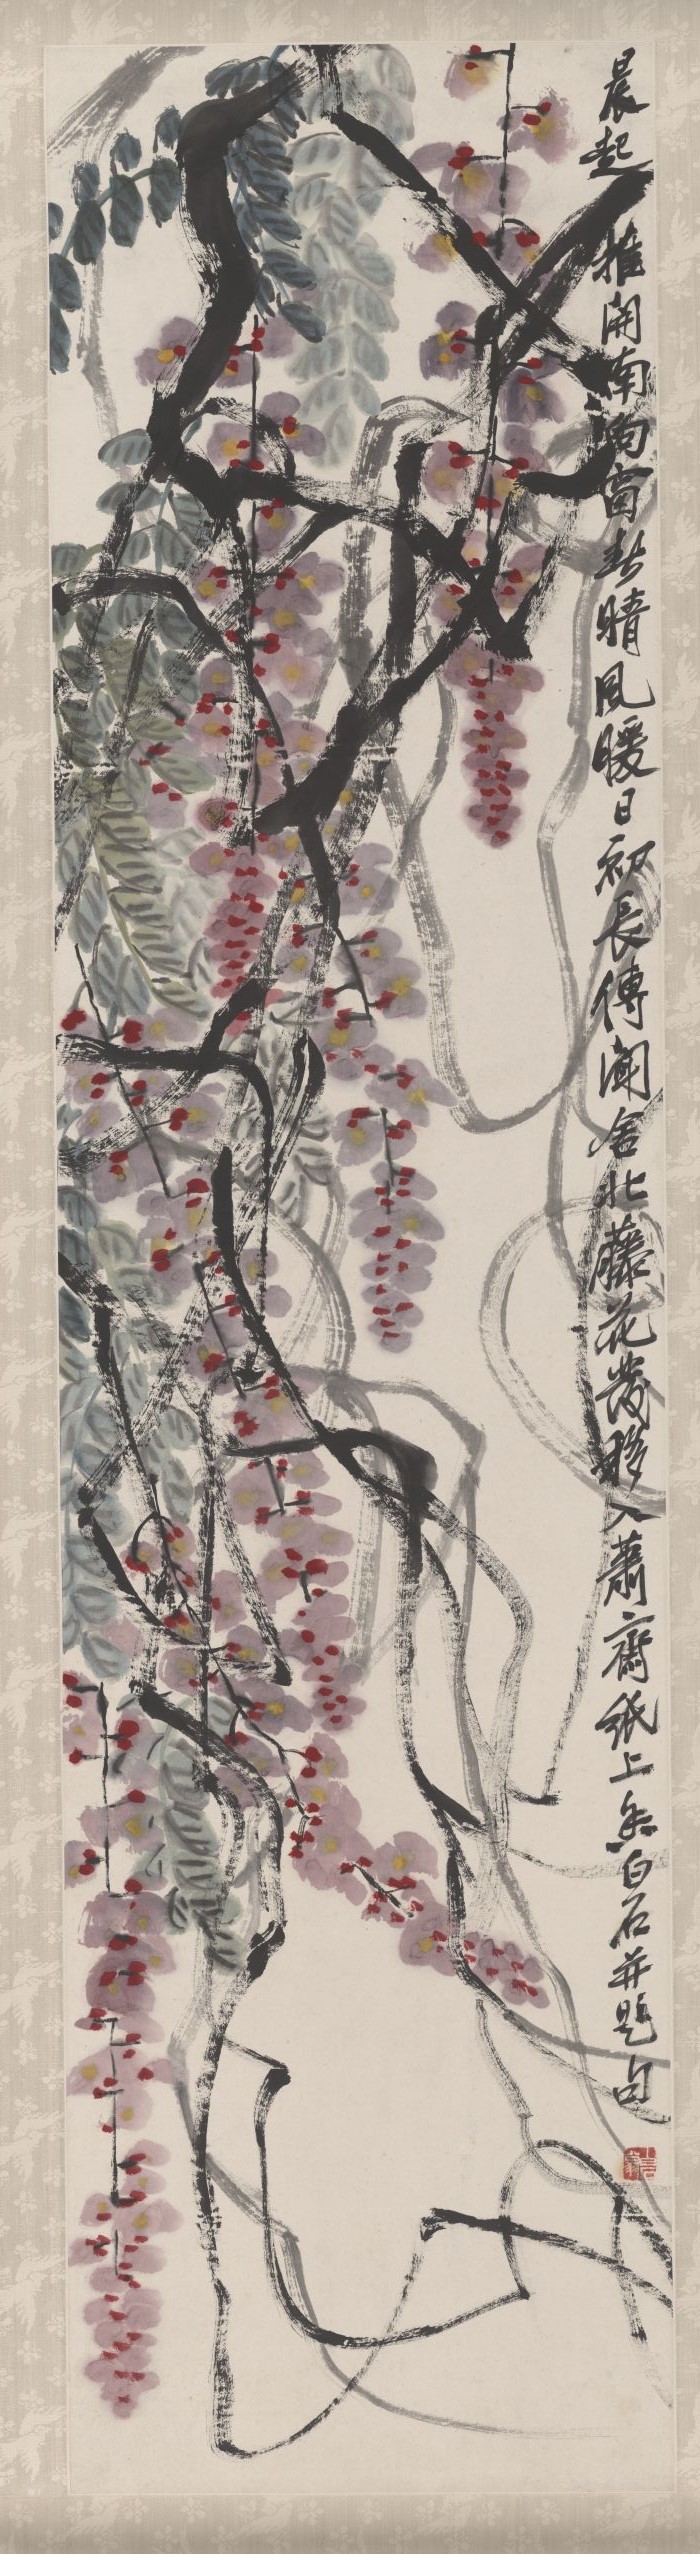 晨起推開南向窗春晴風暖日初長傳聞舍北藤花發移入蕭齋紙上香白石并題句